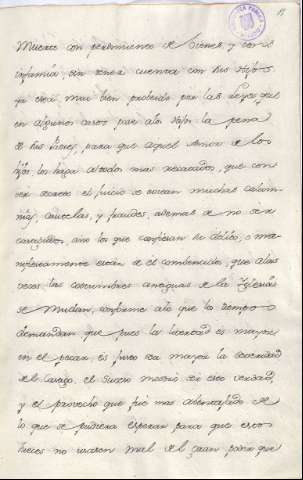 Muerte con perdimiento de bienes, y con
infamia, sin tener cuenta con sus hijos
ya está muy bien probeido por las Leyes que
en algunos casos pase a los hijos la pena
de sus Padres, para que aquel Amor de los
hijos los haga a todos mas recatados, que con
ser secreto el juicio se evitan muchas calum-
nias, cautelas, y fraudes, ademas de no ser
castigados, sino los que confiesan su delito, o ma-
nifiestamente están de el combencidos, que a las
veces las costumbres antiguas de la Iglesia
se mudan, conforme a lo que los tiempos
demandan que pues la libertad es mayor
en el pecar, es justo sea mayor la severidad
del castigo, el suceso mostró ser esto verdad,
y el provecho que fué mas abentajado de
lo que se pudiera esperar para que estos
Jueces no usasen mal de el gran poder que